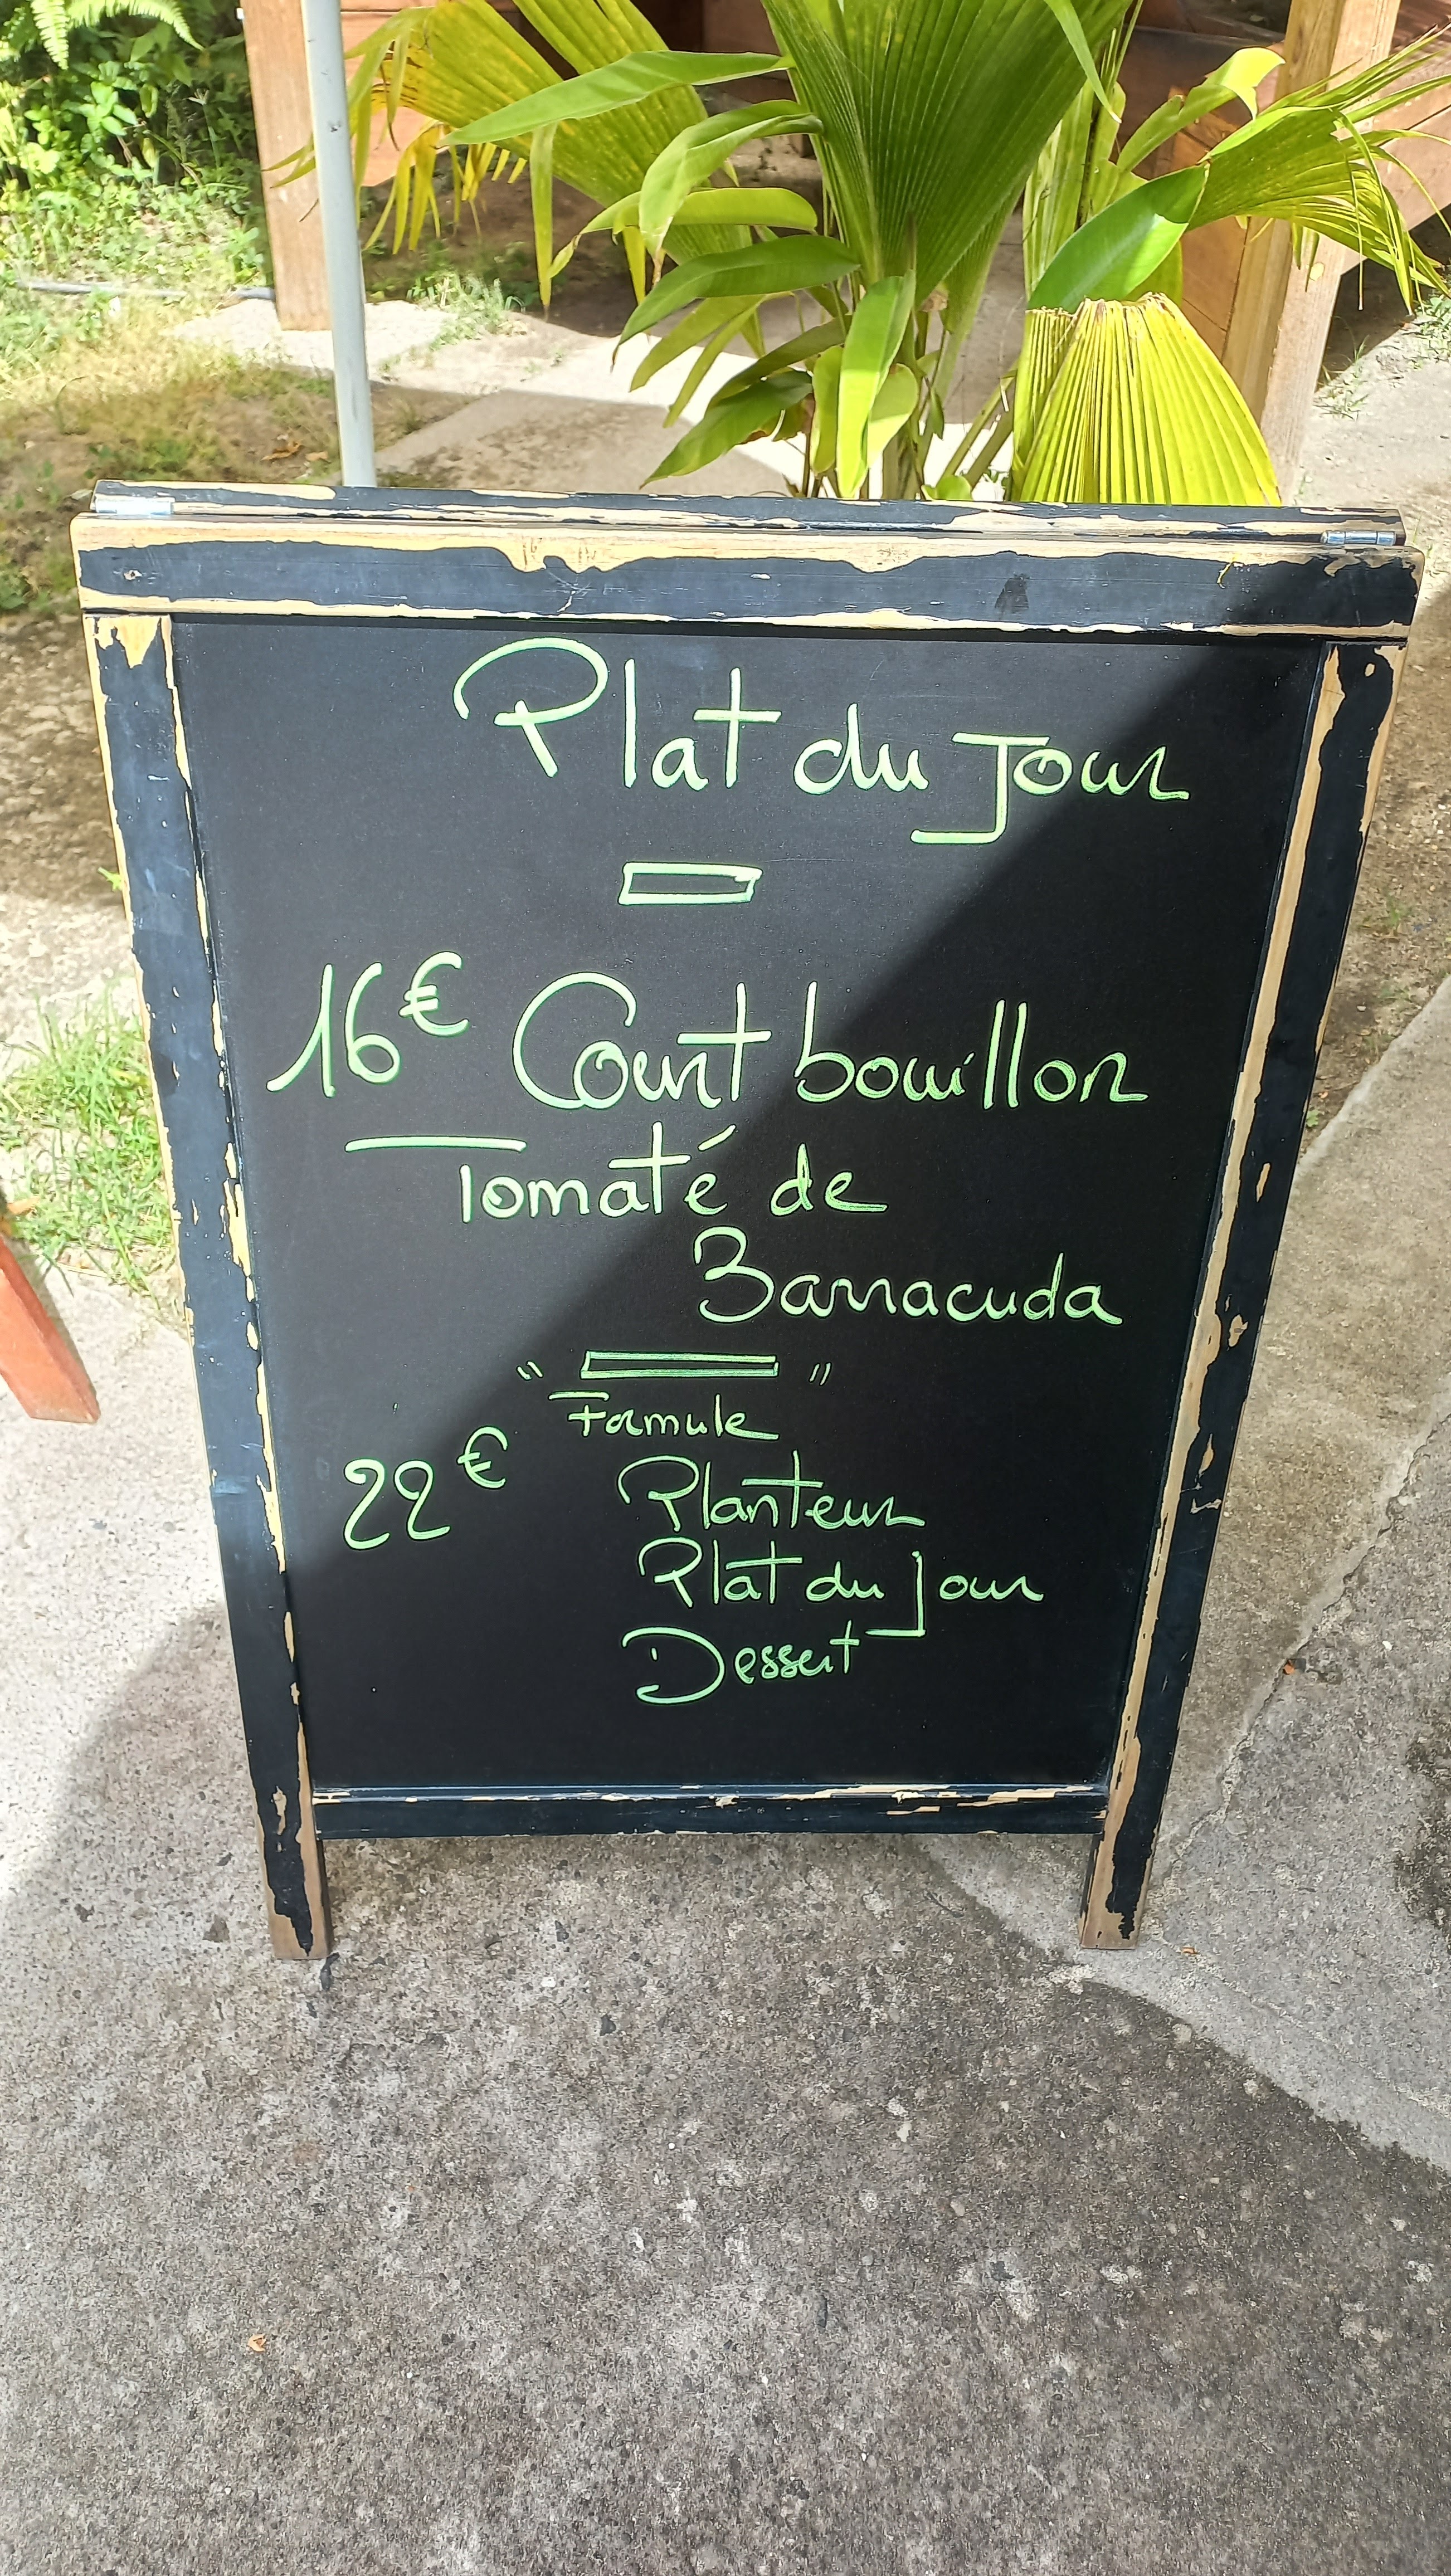 Plat du Jour
16€ Court bouillon
Tomaté de
Barracuda
" "
Formule
22€ Planteur
Plat du jour
Dessert